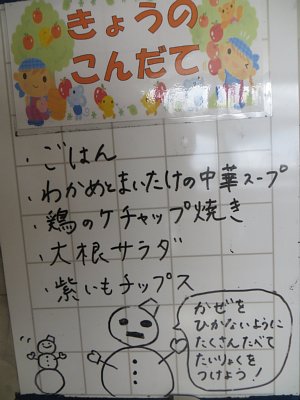 きょうの
こんだて
・ごはん
・わかめとまいたけの中華スープ
・鶏のケチャップ焼き
・大根サラダ
・紫いもチップス
かぜを
ひかないように
たくさんたべて
たいりょくを
つけよう!